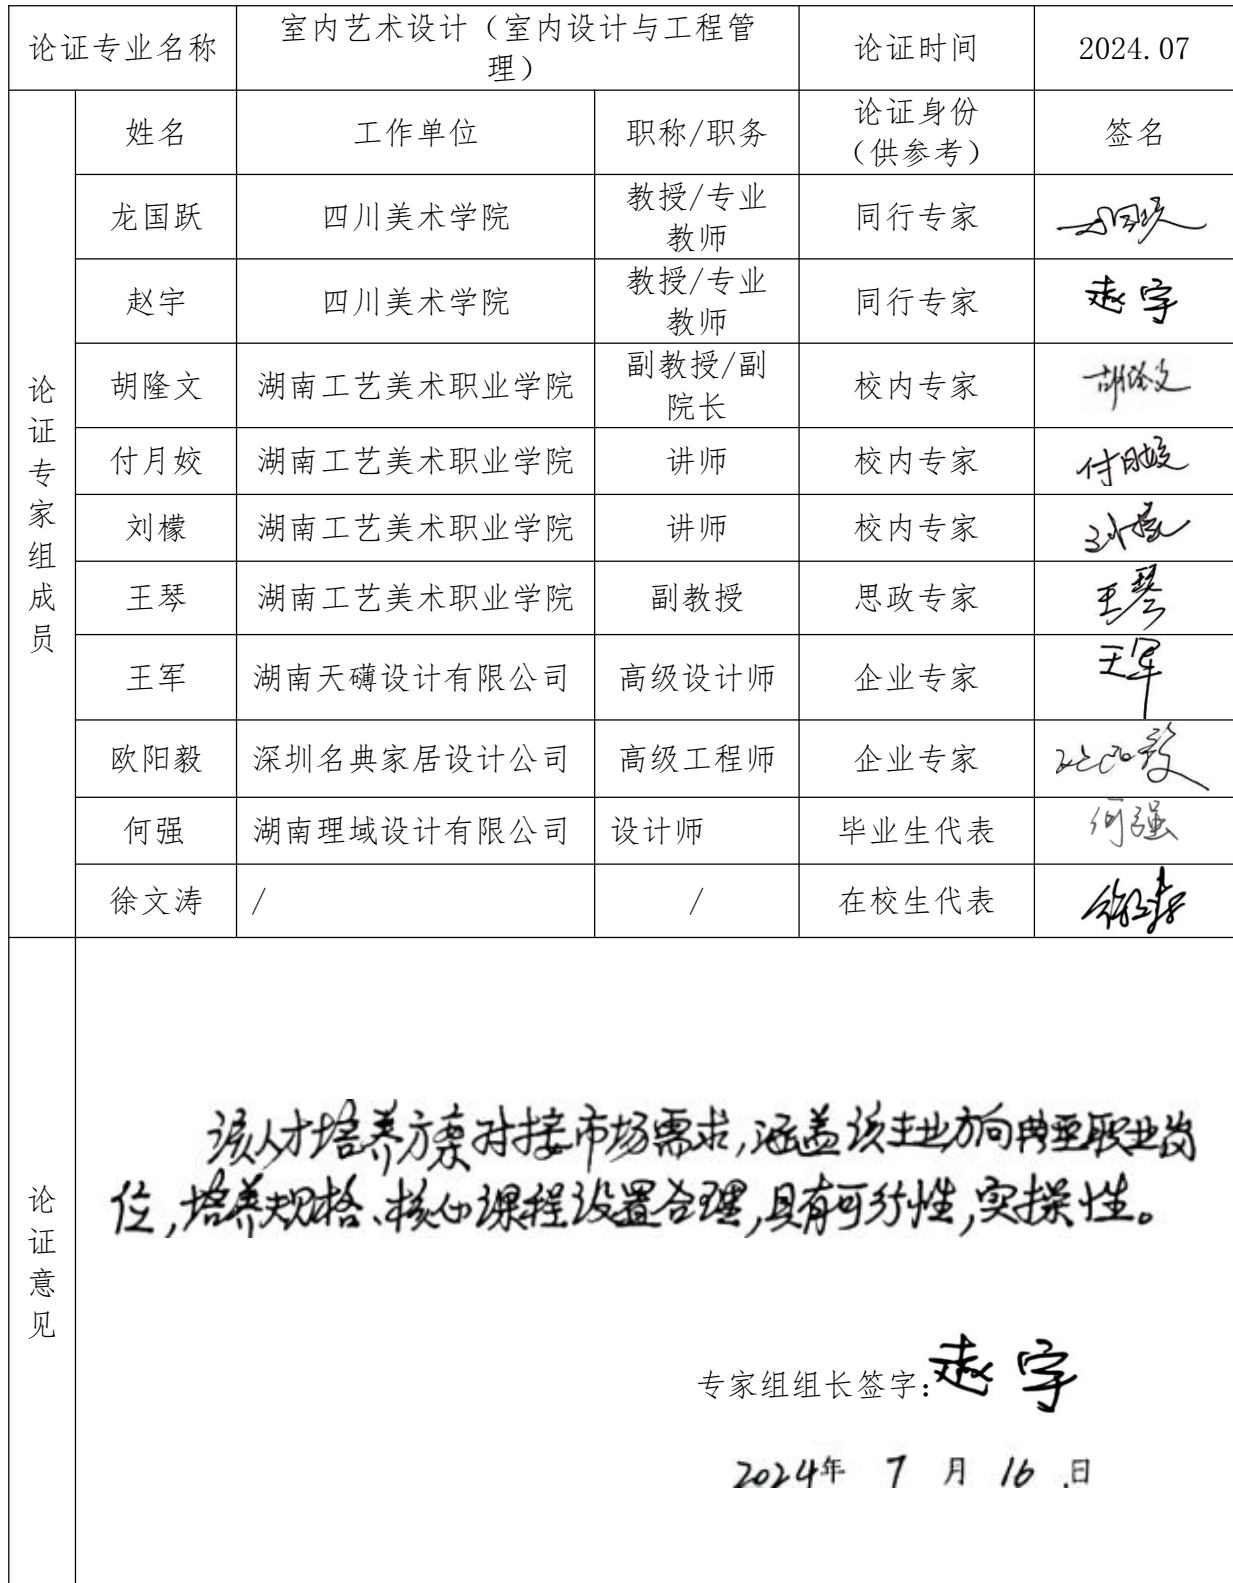 论证专业名称 室内艺术设计（室内设计与工程管理） 论证时间 2024.07
论证专家组成员
姓名 工作单位 职称/职务 论证身份（供参考） 签名
龙国跃 四川美术学院 教授/专业教师 同行专家 龙国跃
赵宇 四川美术学院 教授/专业教师 同行专家 赵宇
胡隆文 湖南工艺美术职业学院 副教授/副院长 校内专家 胡隆文
付月姣 湖南工艺美术职业学院 讲师 校内专家 付月姣
刘檬 湖南工艺美术职业学院 讲师 校内专家 刘檬
王琴 湖南工艺美术职业学院 副教授 思政专家 王琴
王军 湖南天礴设计有限公司 高级设计师 企业专家 王军
欧阳毅 深圳名典家居设计公司 高级工程师 企业专家 欧阳毅
何强 湖南理域设计有限公司 设计师 毕业生代表 何强
徐文涛 / / 在校生代表 徐文涛
论证意见
该人才培养方案对接市场需求,涵盖该专业方向典型职业岗
位,培养规格、核心课程设置合理,具有可行性,实操性。
专家组组长签字:赵宇
2024年 7 月 16 日